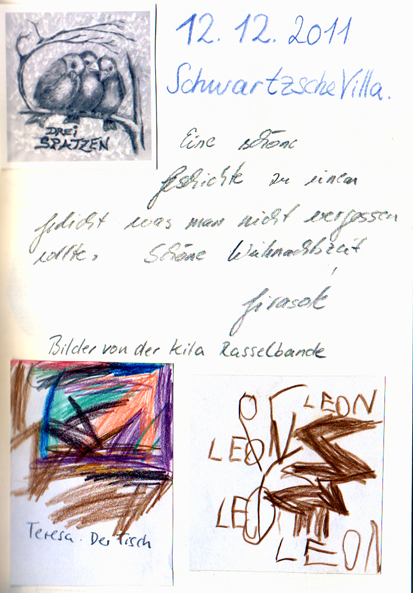 DREI
SPATZEN
12.12.2011
Schwartzsche Villa.
Eine schöne
Geschichte zu einem
Gedicht was man nicht vergessen
sollte. Schöne Weihnachtszeit
!
Jirasok
Bilder von der Kita Rasselbande
Teresa. Der Tisch
LEON
LEON
LEO
LEON